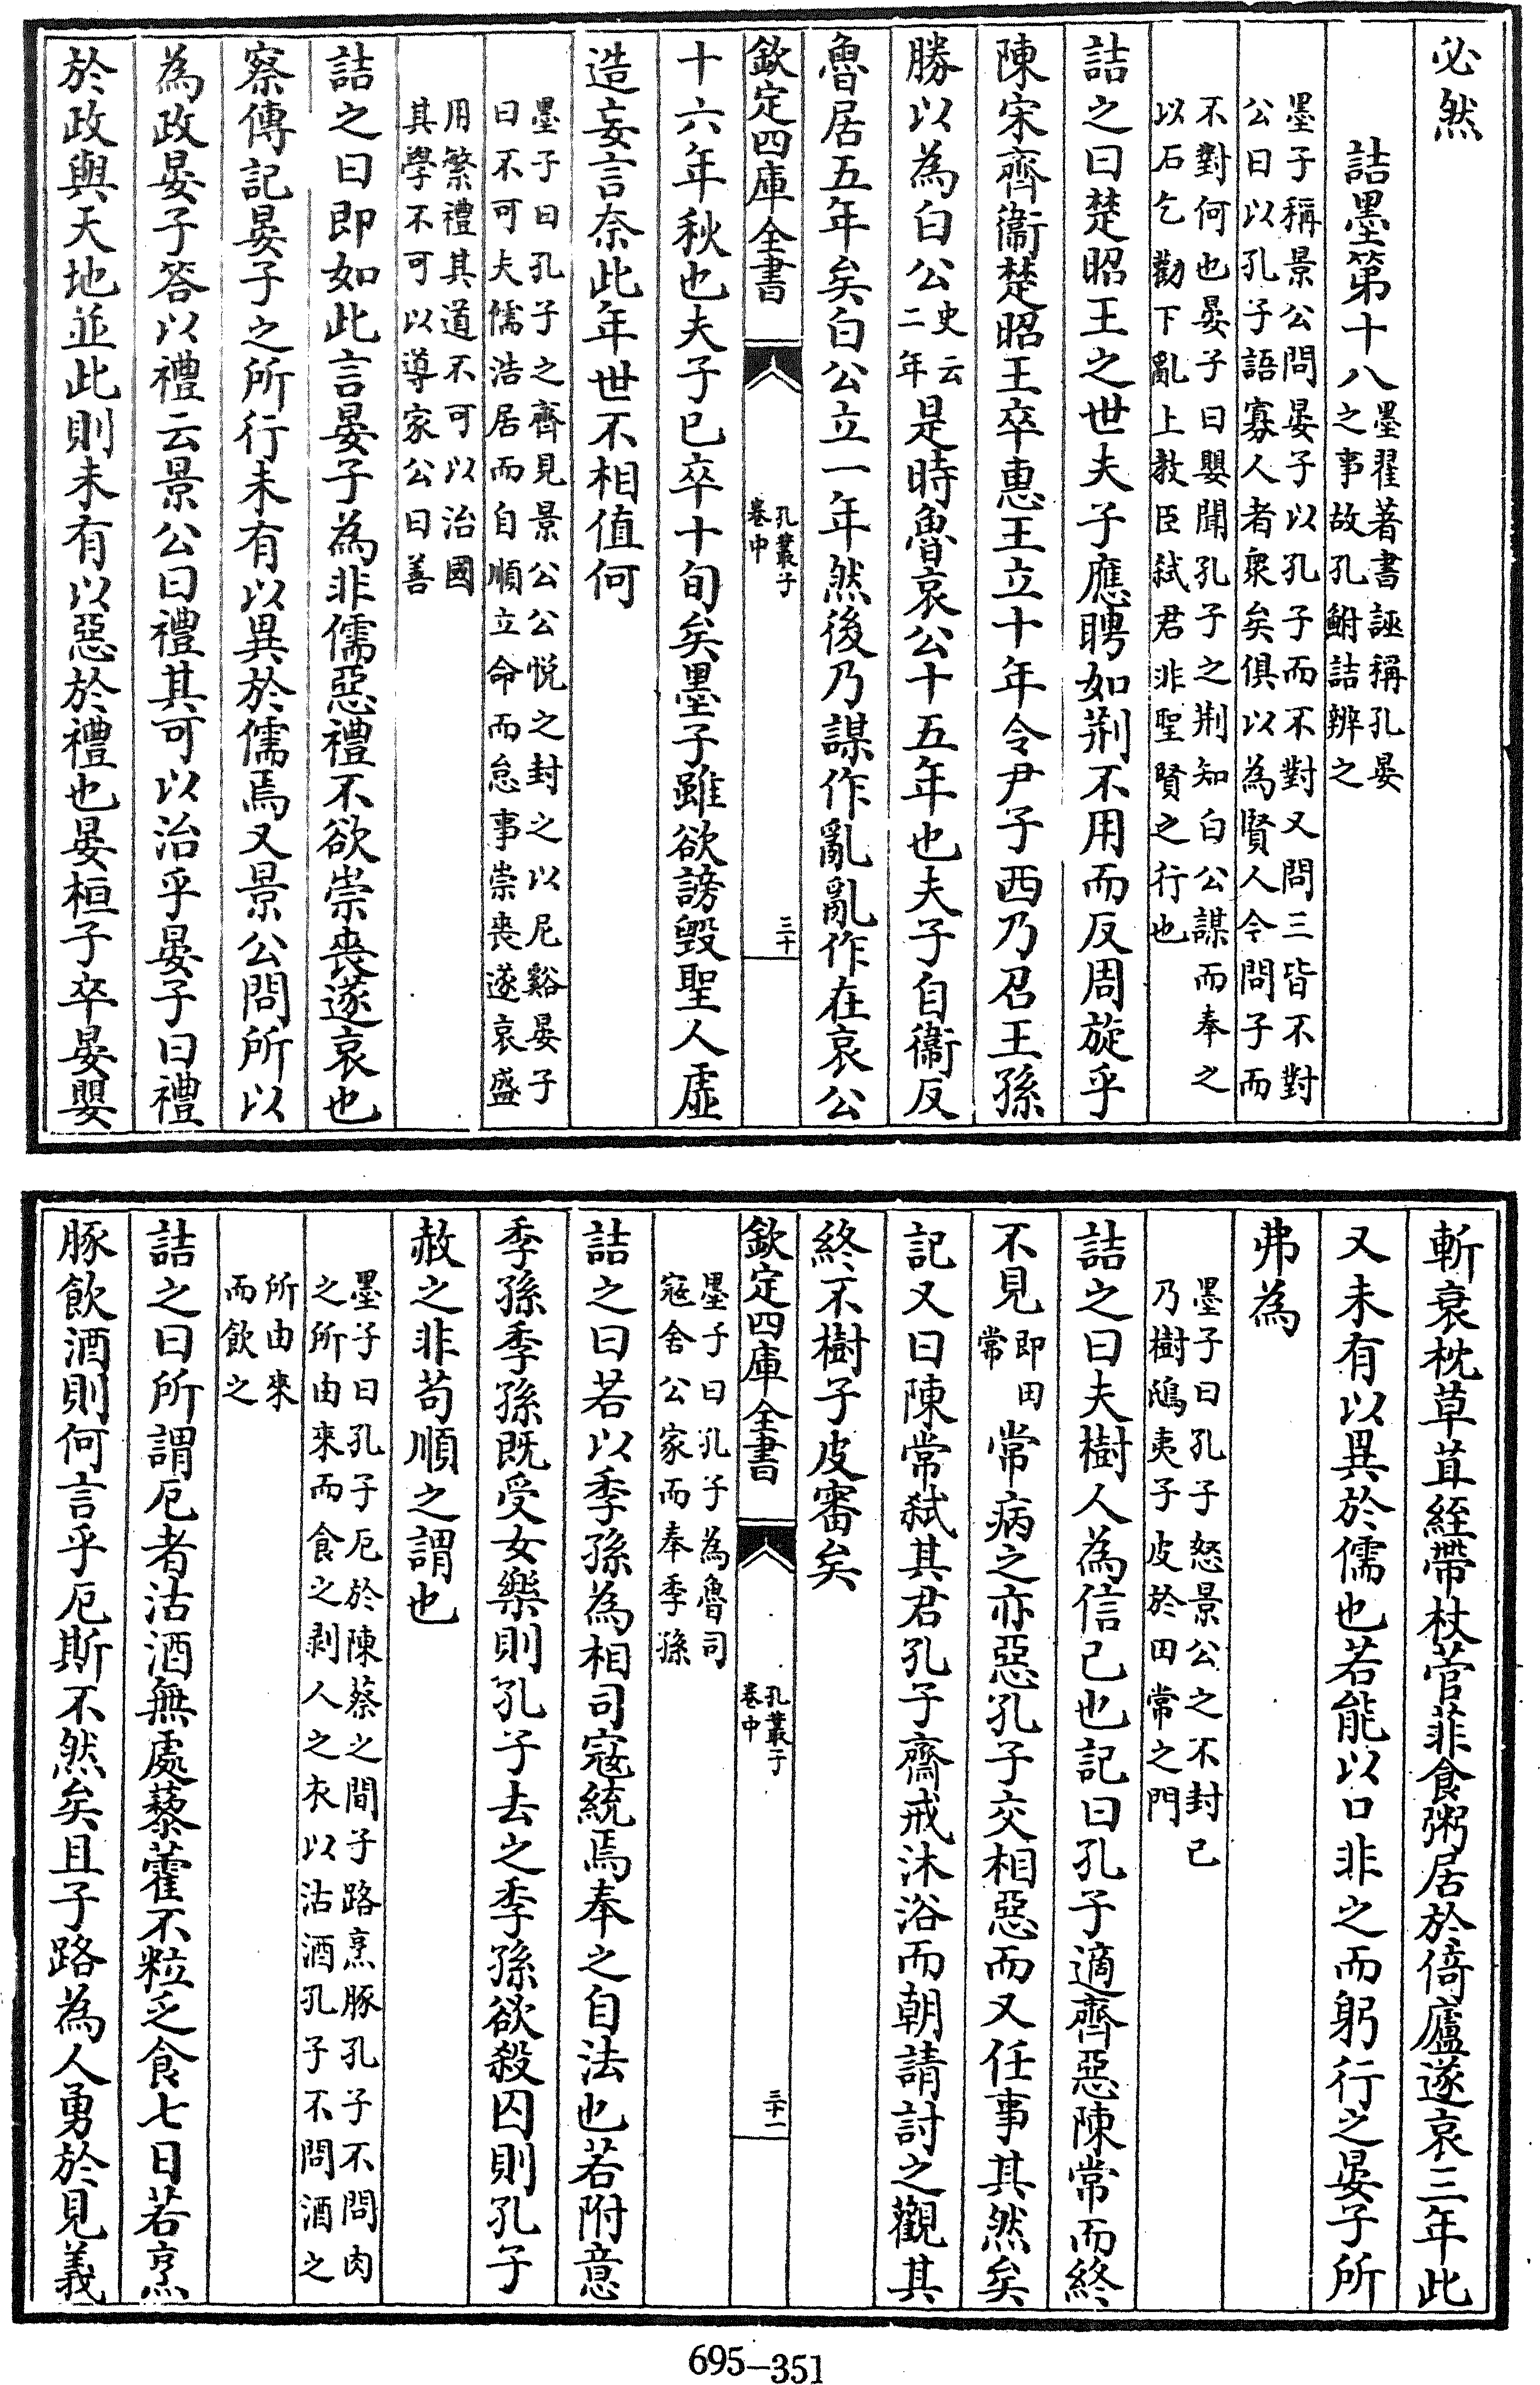 必然
詰墨第十八墨翟著書誣稱孔晏
之事故孔鮒詰辨之
墨子稱景公問晏子以孔子而不對又問三皆不對
公曰以孔子語寡人者衆矣俱以為賢人今問子而
不對何也晏子曰嬰聞孔子之荆知白公謀而奉之
以石乞勸下亂上教臣弑君非聖賢之行也
詰之曰楚昭王之世夫子應聘如荆不用而反周旋乎
陳宋齊衞楚昭王卒惠王立十年令尹子西乃召王孫
勝以為白公史云
二年是時魯哀公十五年也夫子自衞反
魯居五年矣白公立一年然後乃謀作亂亂作在哀公
欽定四庫全書
孔叢子
卷中
三十
十六年秋也夫子已卒十旬矣墨子雖欲謗毀聖人虚
造妄言奈此年世不相值何
墨子曰孔子之齊見景公公悦之封之以尼谿晏子
曰不可夫儒浩居而自順立命而怠事崇喪遂哀盛
用繁禮其道不可以治國
其學不可以導家公曰善
詰之曰即如此言晏子為非儒惡禮不欲崇喪遂哀也
察傳記晏子之所行未有以異於儒焉又景公問所以
為政晏子答以禮云景公曰禮其可以治乎晏子曰禮
於政與天地並此則未有以惡於禮也晏桓子卒晏嬰
斬衰枕草苴絰帶杖菅菲食粥居於倚廬遂哀三年此
又未有以異於儒也若能以口非之而躬行之晏子所
弗為
墨子曰孔子怒景公之不封己
乃樹鴟夷子皮於田常之門
詰之曰夫樹人為信己也記曰孔子適齊惡陳常而終
不見即田
常常病之亦惡孔子交相惡而又任事其然矣
記又曰陳常弑其君孔子齋戒沐浴而朝請討之觀其
終不樹子皮審矣
欽定四庫全書
孔叢子
卷中
三十一
墨子曰孔子為魯司
寇舍公家而奉季孫
詰之曰若以季孫為相司寇統焉奉之自法也若附意
季孫季孫既受女樂則孔子去之季孫欲殺囚則孔子
赦之非苟順之謂也
墨子曰孔子厄於陳蔡之間子路烹豚孔子不問肉
之所由來而食之剥人之衣以沽酒孔子不問酒之
所由來
而飲之
詰之曰所謂厄者沽酒無處藜藿不粒乏食七日若烹
豚飲酒則何言乎厄斯不然矣且子路為人勇於見義
695-351